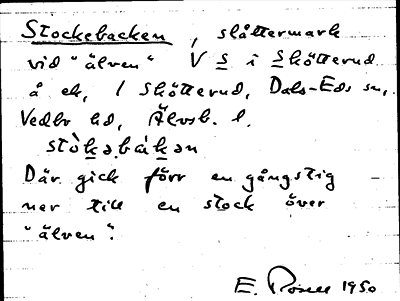 Stockebacken, slåttermark
vid "älven" V S i Skötterud
å ek, 1 Skötterud, Dals-Eds sn,
Vedbo hd, Älvsb. l.
stòkəbàkən
Där gick förr en gångstig
ner till en stock över
"älven".
E. 1950